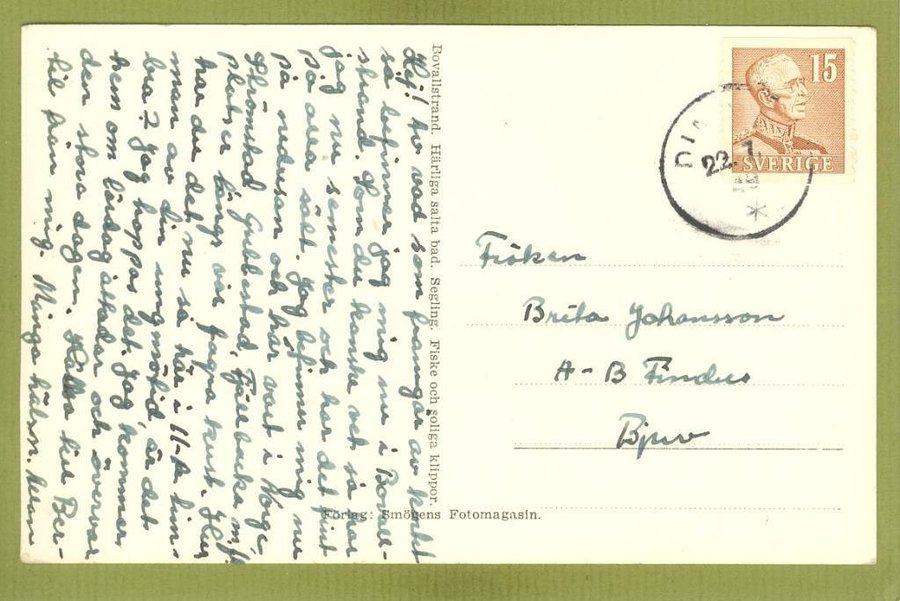 Hej! Av vad som framgår av kortet
så befinner jag mig nu i Bovall-
strand. Som du kanske vet så har
jag nu semester och har det fint
på alla sätt. Jag befinner mig nu
på nedresan och har varit i Norge,
Strömstad, Grebbestad, Fjällbacka m. fl.
platser längs vår fagra kust. Hur
har du det nu så här i 11-A tim-
man av din ungmötid, är det
bra? Jag hoppas det. Jag kommer
hem om lördag åttadar och övervar
den stora dagen. Hälsa till Ber-
til från mig. Många hälsn.
Bovallstrand. Härliga salta bad. Segling. Fiske och soliga klippor.
Förlag: Smögens Fotomagasin.
15
SVERIGE
22.7.
Fröken
Brita Johansson
A-B Findus
Bjuv